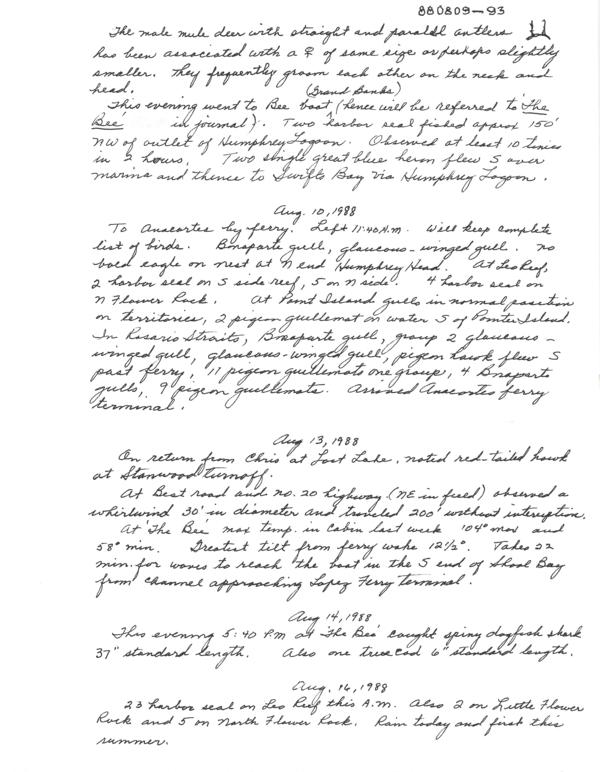 880809-93
The male mule deer with straight and paralel antlers
has been associated with a ♀ of same size or perhaps slightly
smaller. They frequently groom each other on the neck and
head.
(Grand Banks)
This evening went to Bee boat (hence will be referred to 'The
Bee' in journal). Two harbor seal fished approx 150'
NW of outlet of Humphrey Lagoon. Observed at least 10 times
in 2 hours. Two single great blue heron flew S over
marina and thence to Swifts Bay via Humphrey Lagoon.
Aug. 10, 1988
To Anacortes by ferry. Left 11:40 A.M. Will keep complete
list of birds. Bonaparte gull, glaucous-winged gull. No
bald eagle on nest at N end Humphrey Head. At Leo Reef,
2 harbor seal on S side reef, 5 on N side. 4 harbor seal on
N Flower Rock. At Point Island gulls in normal position
on territories, 2 pigeon guillemot on water S of Pointer Island.
In Rosario Straits, Bonaparte gull, group 2 glaucous-
winged gull, glaucous-winged gull, pigeon hawk flew S
past ferry, 11 pigeon guillemots one group, 4 Bonaparte
gulls, 9 pigeon guillemots. Arrived Anacortes ferry
terminal.
Aug 13, 1988
On return from Chris at Lost Lake, noted red-tailed hawk
at Stanwood turnoff.
At Best road and no. 20 highway (NE in field) observed a
whirlwind 30' in diameter and traveled 200' without interuption.
At 'The Bee' max temp. in cabin last week 104° max and
58° min. Greatest tilt from ferry wake 12½°. Takes 22
min. for waves to reach the boat in the S end of Shoal Bay
from channel approaching Lopez Ferry terminal.
Aug 14, 1988
This evening 5:40 PM at 'The Bee' caught spiny dogfish shark
37" standard length. Also one true cod 6" standard length.
Aug. 16, 1988
23 harbor seal on Leo Reef this A.M. Also 2 on Little Flower
Rock and 5 on North Flower Rock. Rain today and first this
summer.